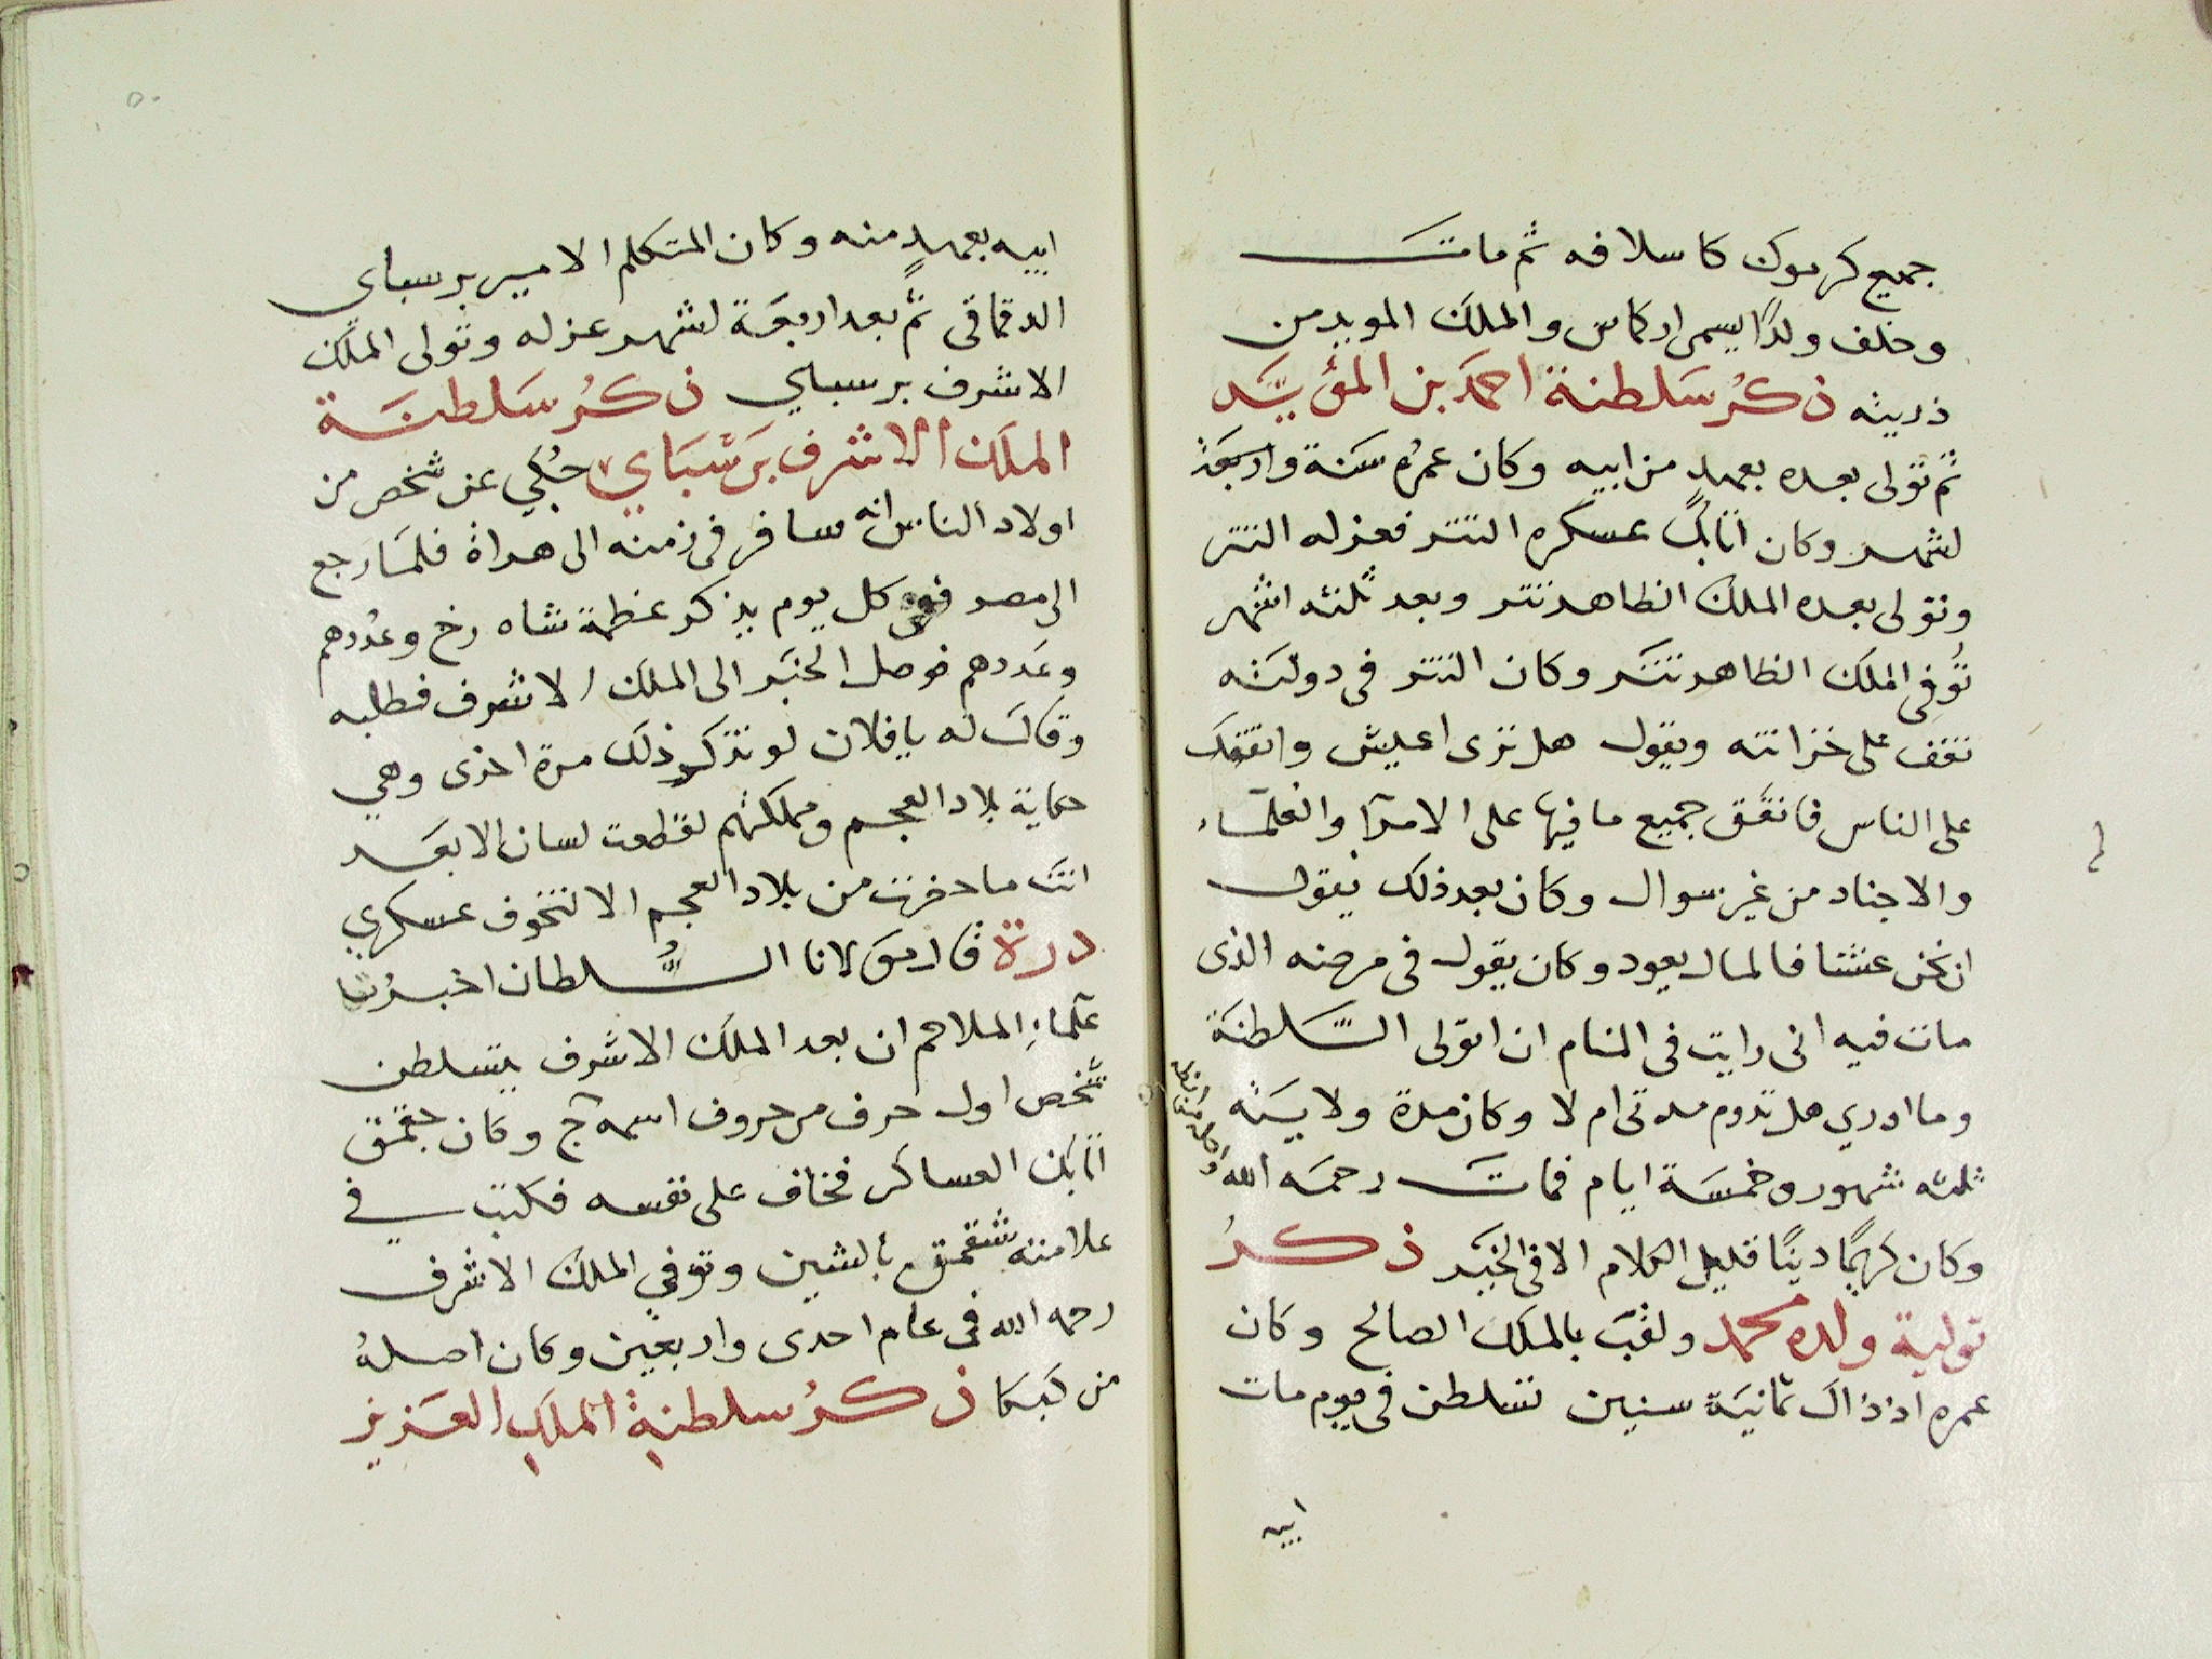 جميع كرموك كاسلافه ثم مات
وخلف ولدًا يسمى اركاس والملك المويد من
ذريته ذكرُ سَلطنة احمَد بن المؤيَّد
ثم تولى بعده بعهدٍ من ابيه وكان عمرُه سَنة واربَعة
اشهر وكان اتابك عسكره التتر فعزله التتر
وتولى بعده الملك الظاهر تتر وبعد ثلثه اشهر
تُوفى الملَك الظاهر تتَر وكان التتر فى دولتَه
تقف على خزانته ويقول هل ترى اعيش وانفقك
على الناس فانفَق جميع ما فيها على الامرآ والعلمَاء
والاجناد من غير سوال وكان بعد ذلك يقول
ان نحن عشنا فالمال يعود وكان يقول فى مرضه الذى
مات فيه انى رايت فى المنام ان اتولى السَّلطنَة
وما ادري هل تدوم مدتى ام لا وكان مدة ولايتَه
ثلثه شهور وخمسَة ايام فماتَ رحمَه الله
وكان كريمًا دينًا قليل الكلام الا فى الخيَر ذكرُ
تولية ولده محمد ولقبَ بالملك الصالح وكان
عمره اذ ذاك ثمانيَة سنين تسَلطن فى يوم مات
ابيه
ابيه بعهدٍ منه وكان المتكلم الامير برسباى
الدقماقى ثم بعد اربعَة اشهر عزله وتولى الملَك
الاشرف برسباي ذكرُ سَلطنَة
الملَك الاشرف بَرسْبَاي حُكي عن شخص من
اولاد الناس انه سافر فى زمنه الى هراة فلمَا رجع
الى مصر فى كل يوم يذكر عظمة شاه رخ وعُددهم
وعَددهم فوصل الخبَر الى الملَك الاشرف فطلبه
وقالَ له يا فلان لو تذكر ذلك مرة اخرى وهي
حكاية بلاد العجم ومملكتهم لقطعت لسان الابعَد
انتَ ما حضرت من بلاد العجم الا لتخوف عسكري
درة قال مولانا السُّلطان اخبرُنا
علمآءِ الملاحم ان بعد الملَك الاشرف يتسلطن
شخص اول حرف من حروف اسمه ج وكان جقمَق
اتابك العساكر فخاف على نفسه فكتبَ في
علامته شقمق بالشين وتوفي الملك الاشرف
رحمه الله فى عام احدى واربعين وكان اصلهُ
من كبكا ذكرُ سلطنةِ الملَكِ العَزيز